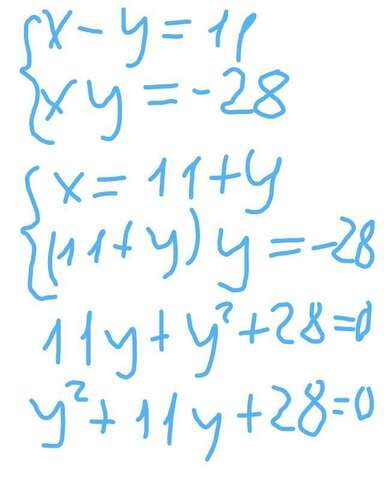 x - y = 11
xy = -28
x = 11 + y
(11 + y) y = -28
11y + y² + 28 = 0
y² + 11y + 28 = 0